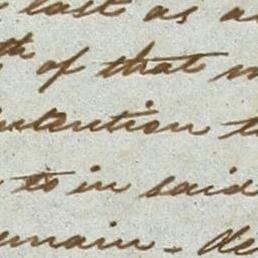 last as a
th of that
intention t
to in said
remain - de